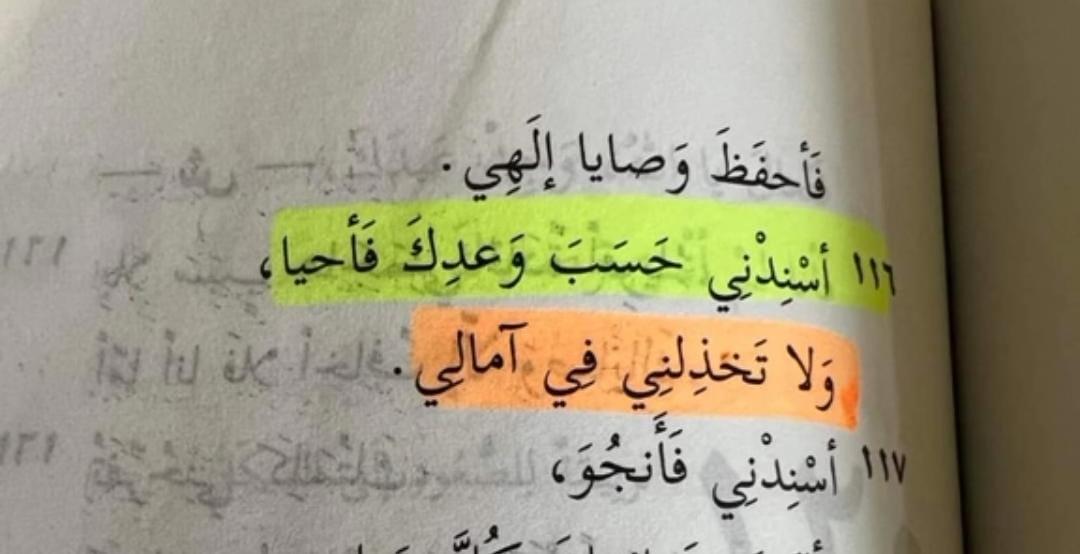 فَأحفَظَ وَصايا إلَهِي.
١١٦ أسْنِدْنِي حَسَبَ وَعدِكَ فَأحيا،
وَلا تَخذِلنِي فِي آمالِي.
١١٧ أسْنِدْنِي فَأَنجُوَ،